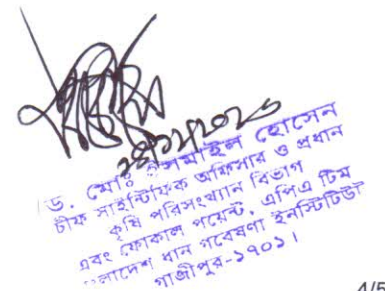 ড. মোঃ ইসমাইল হোসেন
চীফ সাইন্টিফিক অফিসার ও প্রধান
কৃষি পরিসংখ্যান বিভাগ
এবং ফোকাল পয়েন্ট, এপিএ টিম
বাংলাদেশ ধান গবেষণা ইনস্টিটিউট
গাজীপুর-১৭০১।
4/5